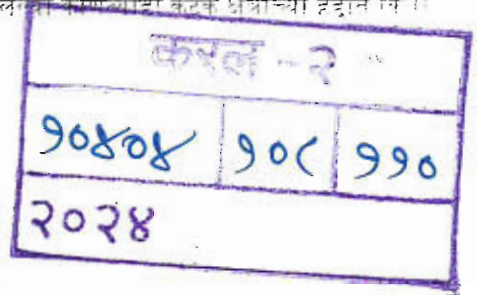 करल - २
१०४०४ १०८ ११०
२०२४